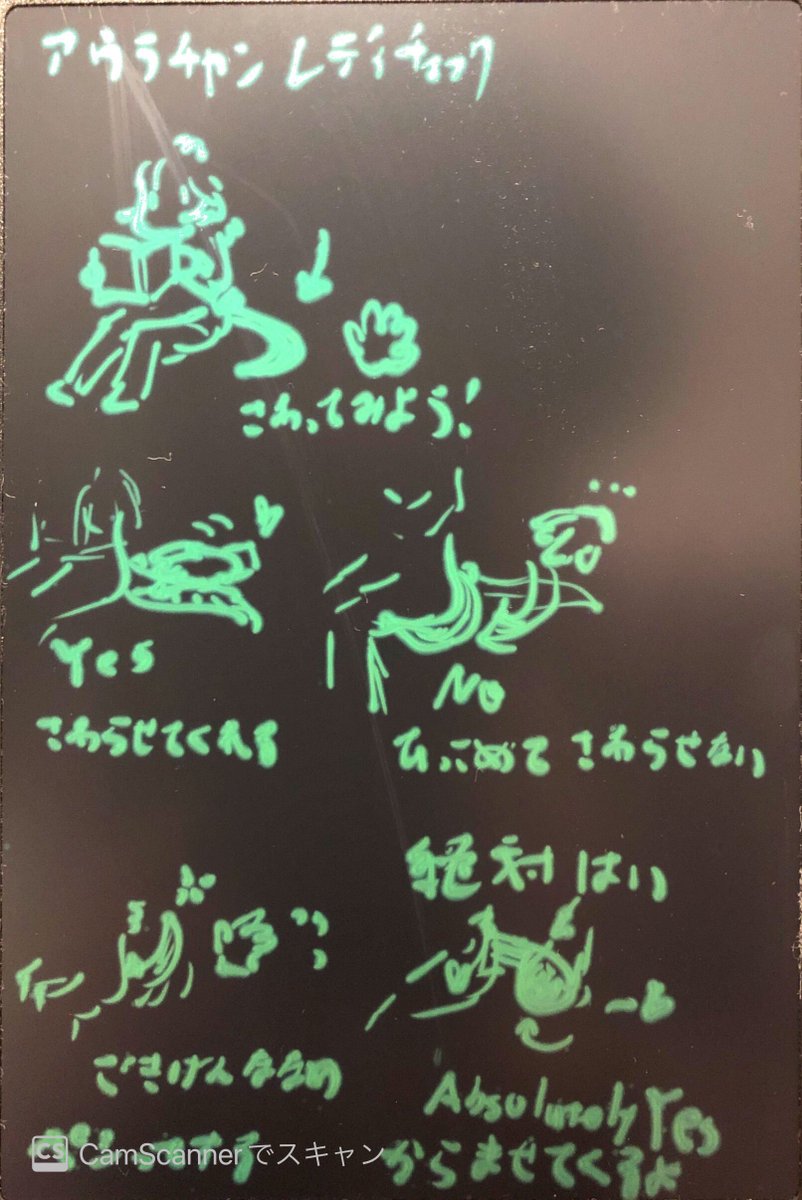 アウラチャン レディチェック
さわってみよう!
Yes
さわらせてくれる
No
ひっこめて さわらせない
絶対はい
イヤン
ごきげんななめ
Absolutely Yes
からませてくるよ
CS CamScanner でスキャン